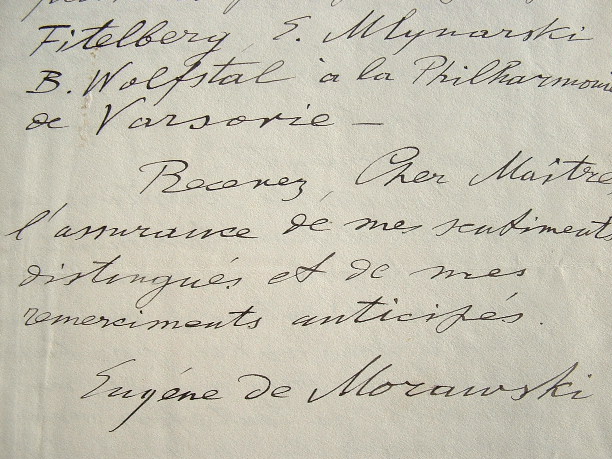 Fitelberg, E. Mlynarski
B. Wolfstal à la Philharmonie
de Varsovie —
Recevez, Cher Maître,
l'assurance de mes sentiments
distingués et de mes
remerciments anticipés.
Eugéne de Morawski